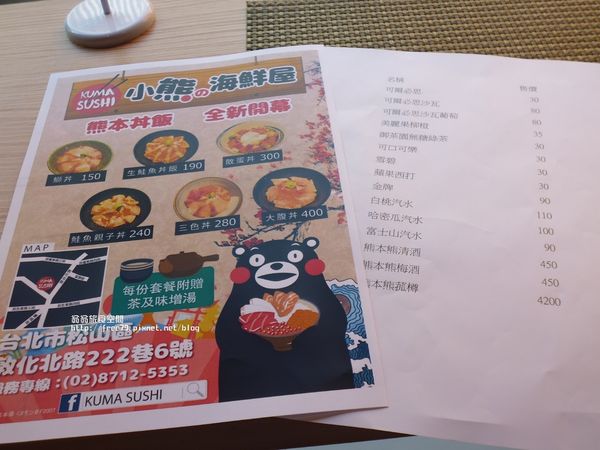 KUMA SUSHI 小熊の海鮮屋
熊本丼飯 全新開幕
鰤丼 150 生鮭魚丼飯 190 散蛋丼 300
鮭魚親子丼 240 三色丼 280 大腹丼 400
MAP
KUMA SUSHI
每份套餐附贈
茶及味增湯
翁翁旅食空間
http://free79.pixnet.net/blog
台北市松山區
敦化北路222巷6號
服務專線：(02)8712-5353
f KUMA SUSHI
名稱 售價
可爾必思 30
可爾必思沙瓦 80
可爾必思沙瓦葡萄 80
美麗果柳橙 35
御茶園無糖綠茶 30
可口可樂 30
雪碧 30
蘋果西打 30
金牌 90
白桃汽水 90
哈密瓜汽水 110
富士山汽水 100
熊本熊清酒 450
熊本熊梅酒 450
熊本熊菰樽 4200